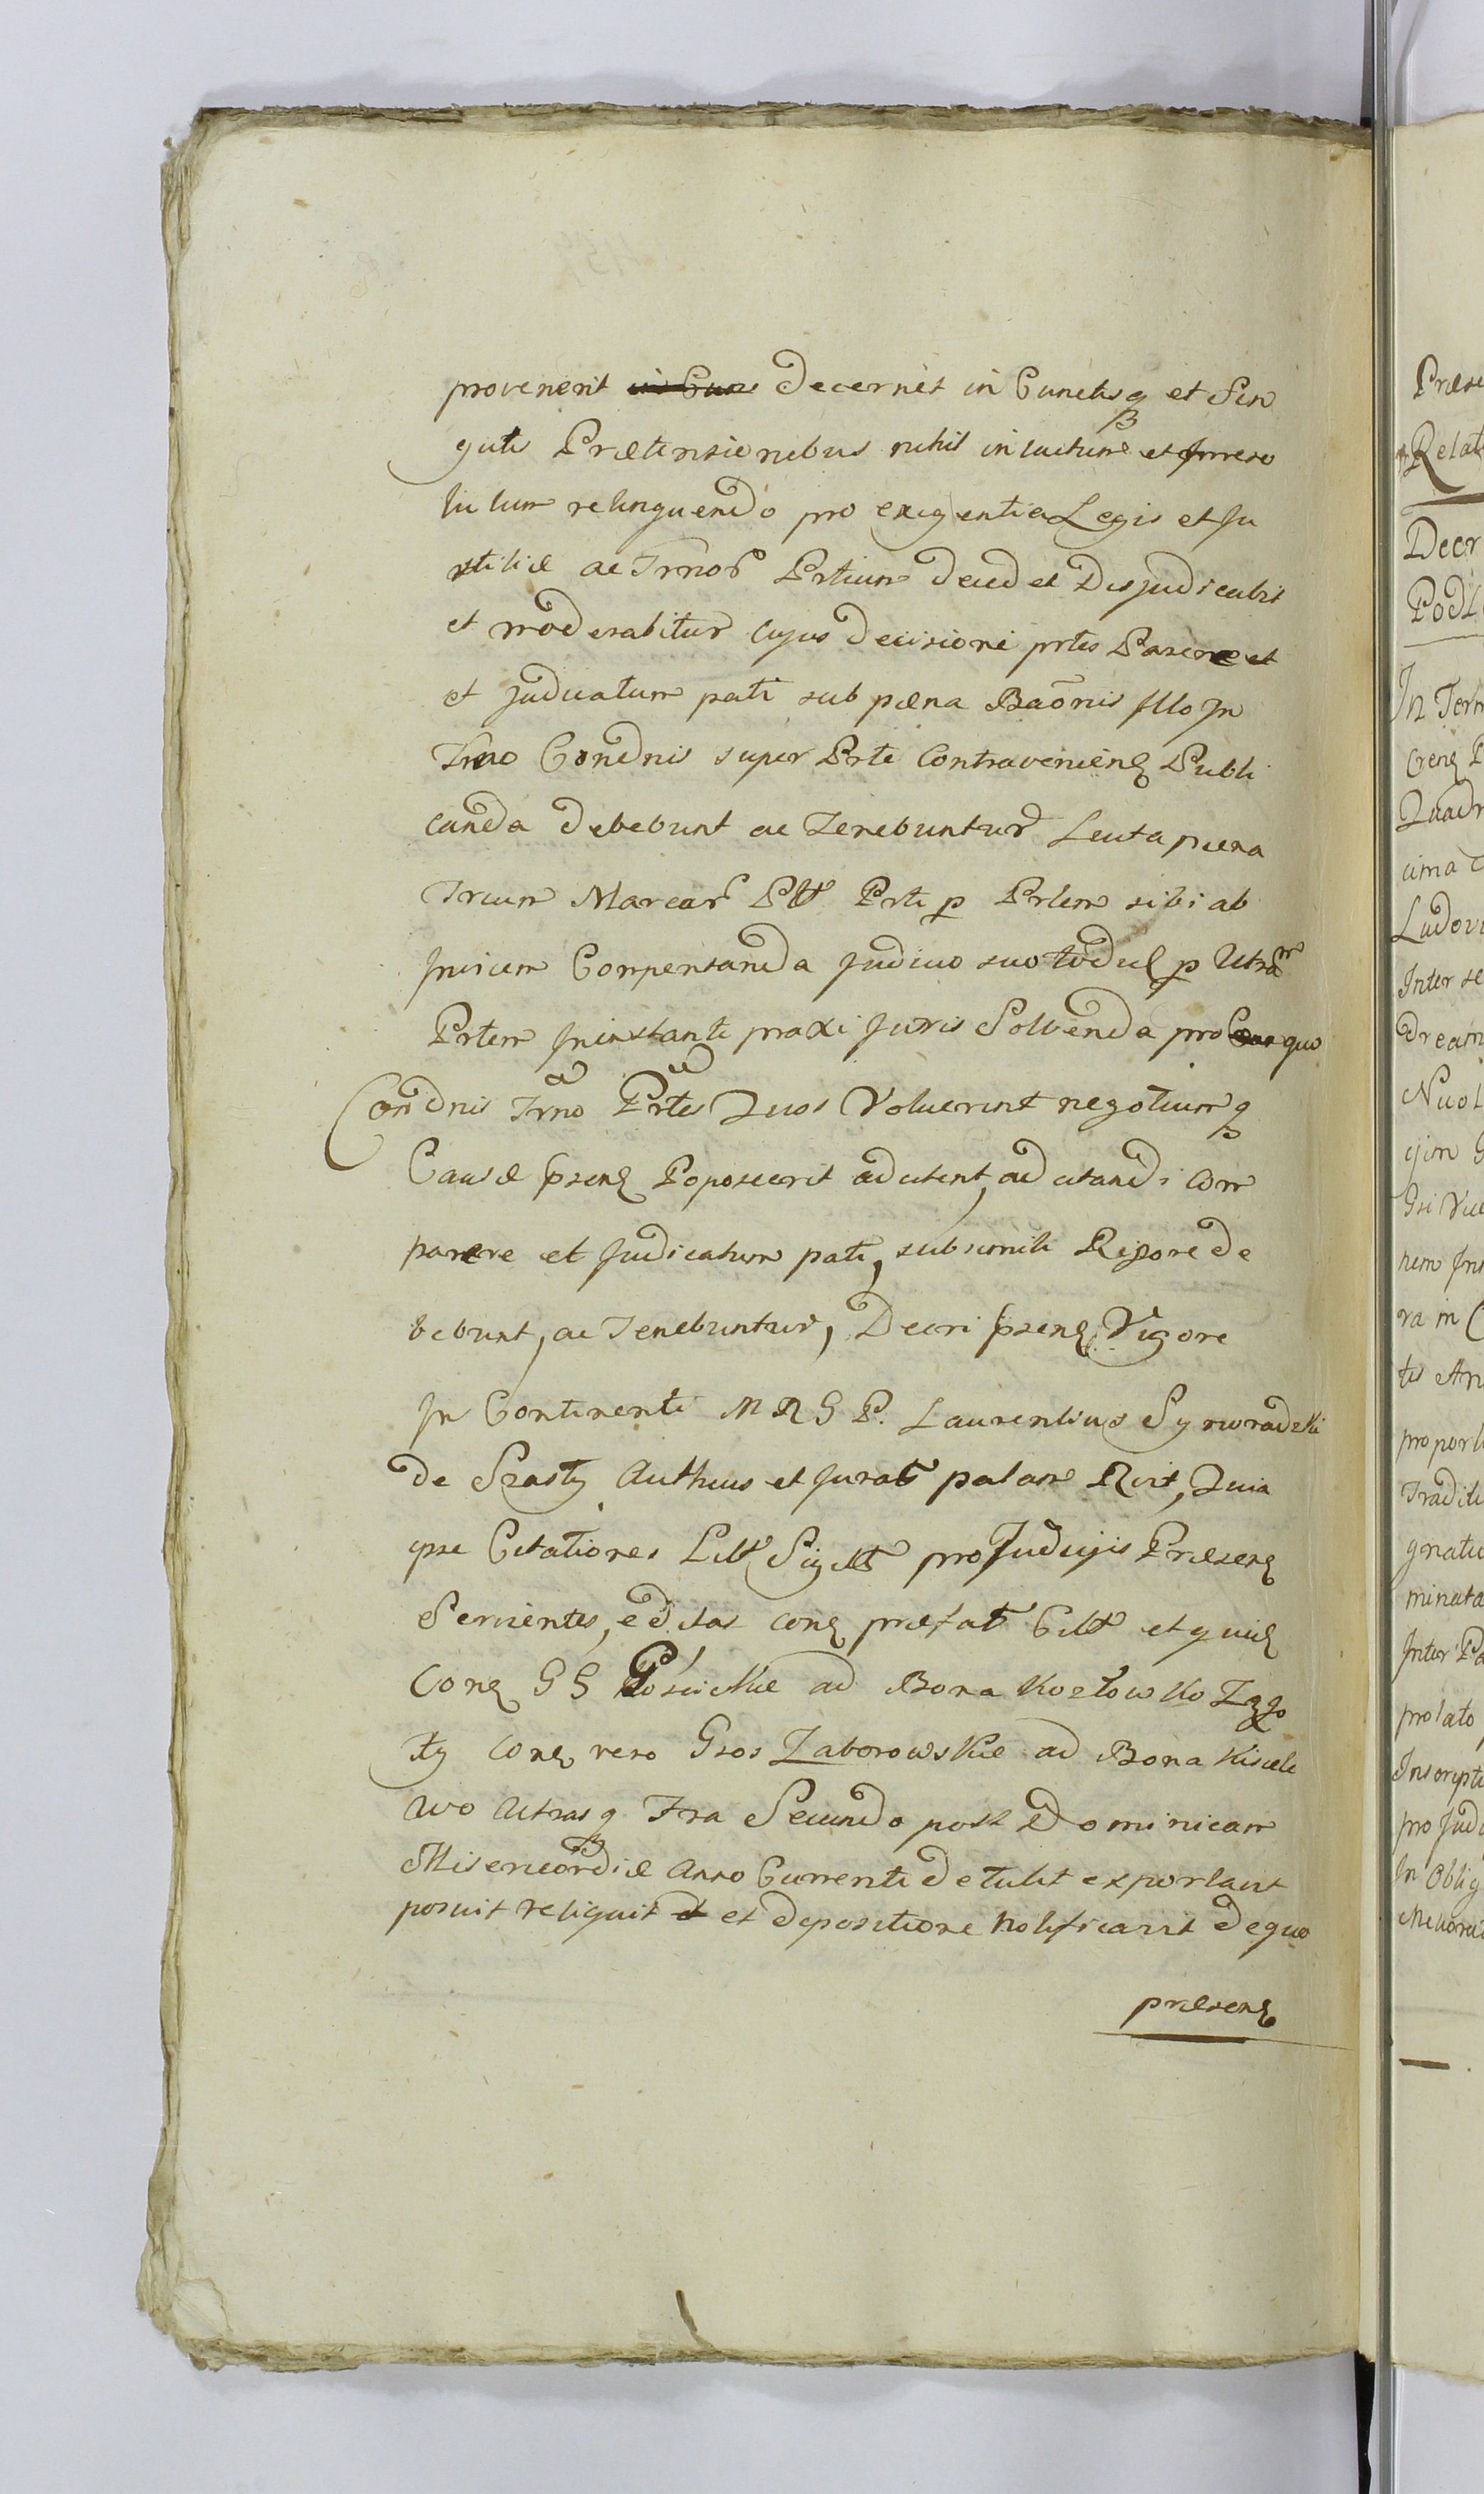 provenerit in Cun Decernet in Cunctisq et Sin
gulis Prætensionibus nihil intactum et Irreso
lutum relinquendo pro exigentia Legis et Ju
stitiæ ac Trnor Prtium decidet Disjudicabit
et moderabitur cujus decisioni prtes Parere et
et judicatum pati sub pæna Baõnis Illo In
Trno Condnis super Prte Contravenienę Publi
canda debebunt ac Tenebuntur Luita pæna
Trium Marcar Plt Prti p Prtem sibi ab
Invicem Compensanda Judicio suo p Utram
Prtem Ininstanti praxi Juris Solvenda pro quo
Condnis Trno Prtes Quos Voluerint negotiumq
Causæ psenę Poposcerit adcitent, adcitandi com
parere et Judicatum pati, subsimili Rigore de
bebunt, ac Tenebuntur, Decri psenę Vigore
In Continenti M R G P. Laurentius Syrwradzki
de Szasty Authcus et Jurat palam Rcvit, Quia
ipse Citationes Litt Sigilt pro Judicijs Præsenę
Servientes, editas conę præfat Citt et quidę
Conę GG Pościckie ad Bona Kozłowko Zgo
ty conę vero Gsos Zaborowskie ad Bona Kisiele
wo Utrasq Fra Secunda post Dominicam
Misericordiæ Anno Currenti detulit exportavit
posuit reliquit et depositione Notificavit de quo
præsenę
Præse
Relat
Decr
Podl
In Term
Genę P
Quadr
cima
Ludovi
Inter se
dream
Nuol
ejim G
Gsi Vice
nem Ins
ra in C
tis An
proporti
Traditi
gnatio
minata
Inter Pa
prolato
Inscripti
pro Judi
In Oblig